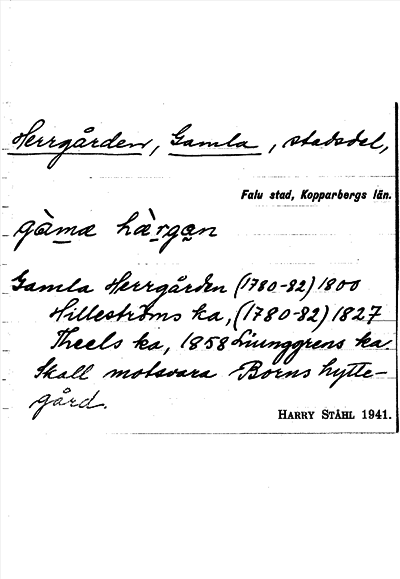 Herrgården, Gamla, stadsdel,
Falu stad, Kopparbergs län.
gàma hàrgan
Gamla Herrgården (1780-82) 1800
Hilleströms ka, (1780-82) 1827
Theels ka, 1858 Liunggrens ka
Skall motsvara Borns hytte-
gård.
HARRY STÅHL 1941.